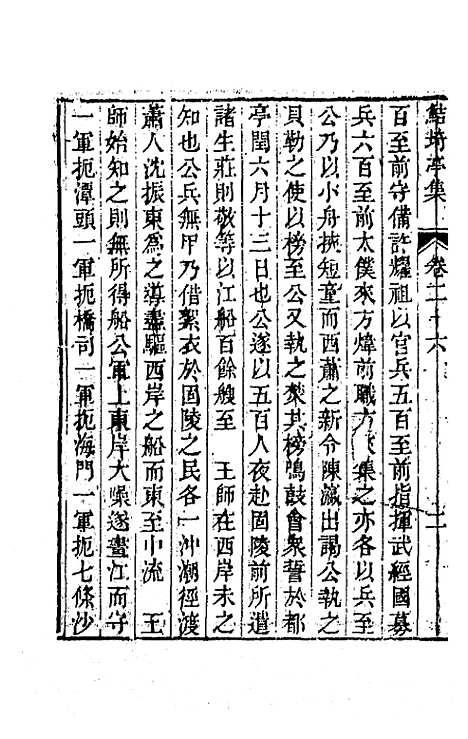 鮚埼亭集 卷二十六 二
百至前守備許耀祖以官兵五百至前指揮武經國募
兵六百至前太僕來方煒前職方來集之亦各以兵至
公乃以小舟挾短童而西蕭之新令陳瀛出謁公執之
貝勒之使以榜至公又執之焚其榜鳴鼓會衆誓於都
亭閏六月十三日也公遂以五百人夜赴固陵前所遣
諸生莊則敬等以江船百餘艘至 王師在西岸未之
知也公兵無甲乃借絮衣於固陵之民各一沖潮徑渡
蕭人沈振東爲之導盡驅西岸之船而東至中流 王
師始知之則無所得船公軍上東岸大噪遂畫江而守
一軍扼潭頭一軍扼橋司一軍扼海門一軍扼七條沙